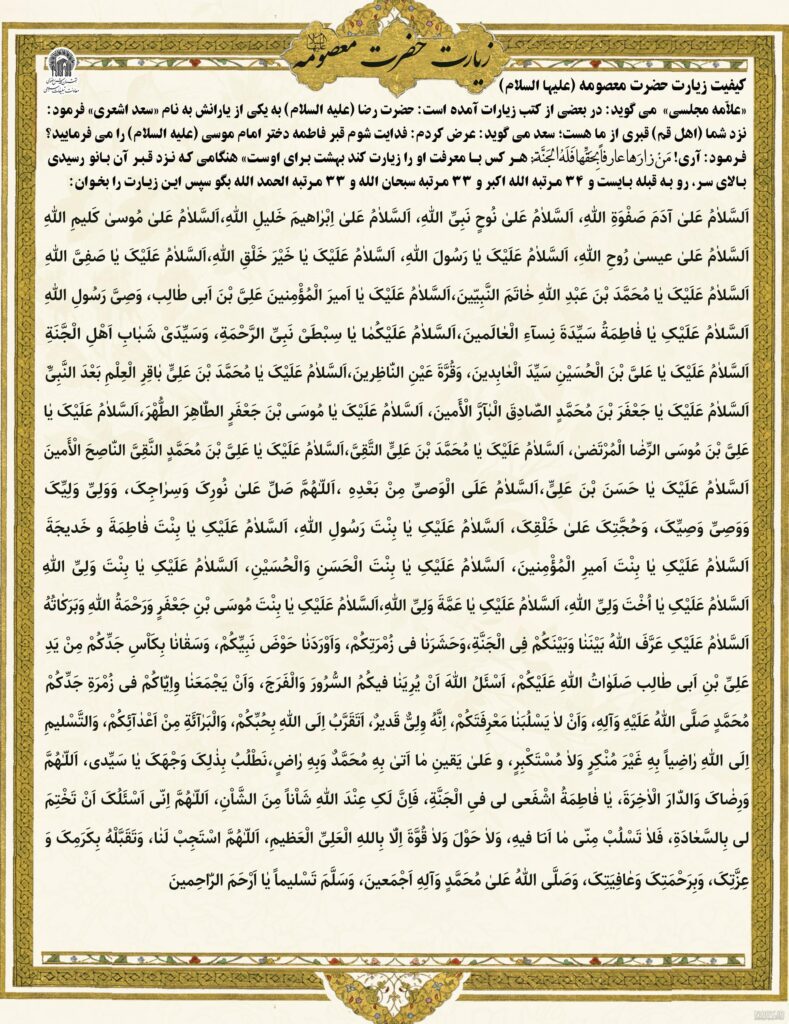 زیارت حضرت معصومه
کیفیت زیارت حضرت معصومه (علیها السلام)
«علاّمه مجلسی» می گوید: در بعضی از کتب زیارات آمده است: حضرت رضا (علیه السلام) به یکی از یارانش به نام «سعد اشعری» فرمود:
نزد شما (اهل قم) قبری از ما هست؛ سعد می گوید: عرض کردم: فدایت شوم قبر فاطمه دختر امام موسی (علیه السلام) را می فرمایید؟
فرمود: آری! مَنْ زارَها عارِفاً بِحَقِّها فَلَهُ الْجَنَّةُ؛ هر کس با معرفت او را زیارت کند بهشت برای اوست» هنگامی که نزد قبر آن بانو رسیدی
بالای سر، رو به قبله بایست و ۳۴ مرتبه الله اکبر و ۳۳ مرتبه سبحان الله و ۳۳ مرتبه الحمد الله بگو سپس این زیارت را بخوان:
اَلسَّلاٰمُ عَلیٰ آدَمَ صَفْوَةِ اللهِ، اَلسَّلاٰمُ عَلیٰ نُوحٍ نَبِیِّ اللهِ، اَلسَّلاٰمُ عَلیٰ اِبْراهیمَ خَلیلِ اللهِ،اَلسَّلاٰمُ عَلیٰ مُوسیٰ کَلیمِ اللهِ
اَلسَّلاٰمُ عَلیٰ عیسیٰ رُوحِ اللهِ، اَلسَّلاٰمُ عَلَیْکَ یٰا رَسُولَ اللهِ، اَلسَّلاٰمُ عَلَیْکَ یٰا خَیْرَ خَلْقِ اللهِ،اَلسَّلاٰمُ عَلَیْکَ یٰا صَفِیَّ اللهِ
اَلسَّلاٰمُ عَلَیْکَ یٰا مُحَمَّدَ بْنَ عَبْدِ اللهِ خٰاتَمَ النَّبِیّینَ،اَلسَّلاٰمُ عَلَیْکَ یٰا اَمیرَ الْمُؤْمِنینَ عَلِیَّ بْنَ اَبی طٰالِب، وَصِیَّ رَسُولِ اللهِ
اَلسَّلاٰمُ عَلَیْکِ یٰا فٰاطِمَةُ سَیِّدَةَ نِسآءِ الْعٰالَمینَ،اَلسَّلاٰمُ عَلَیْکُمٰا یٰا سِبْطَیْ نَبِیِّ الرَّحْمَةِ، وَسَیِّدَیْ شَبٰابِ اَهْلِ الْجَنَّةِ
اَلسَّلاٰمُ عَلَیْکَ یٰا عَلیَّ بْنَ الْحُسَیْنِ سَیِّدَ الْعٰابِدینَ، وَقُرَّةَ عَیْنِ النّٰاظِرینَ،اَلسَّلاٰمُ عَلَیْکَ یٰا مُحَمَّدَ بْنَ عَلِیٍّ بٰاقِرِ الْعِلْمِ بَعْدَ النَّبِیِّ
اَلسَّلاٰمُ عَلَیْکَ یٰا جَعْفَرَ بْنَ مُحَمَّدٍ الصّٰادِقَ الْبٰآرَّ الْأَمینَ، اَلسَّلاٰمُ عَلَیْکَ یٰا مُوسَی بْنَ جَعْفَرٍ الطّٰاهِرَ الطُّهْرَ،اَلسَّلاٰمُ عَلَیْکَ یٰا
عَلِیَّ بْنَ مُوسَی الرِّضٰا الْمُرْتَضیٰ، اَلسَّلاٰمُ عَلَیْکَ یٰا مُحَمَّدَ بْنَ عَلِیٍّ التَّقِیَّ،اَلسَّلاٰمُ عَلَیْکَ یٰا عَلِیَّ بْنَ مُحَمَّدٍ النَّقِیَّ النّٰاصِحَ الْأَمینَ
اَلسَّلاٰمُ عَلَیْکَ یٰا حَسَنَ بْنَ عَلِیٍّ،اَلسَّلاٰمُ عَلَی الْوَصیِّ مِنْ بَعْدِهِ ،اَللّٰهُمَّ صَلِّ عَلیٰ نُورِکَ وَسِرٰاجِکَ، وَوَلِیِّ وَلِیِّکَ
وَوَصِیِّ وَصِیِّکَ، وَحُجَّتِکَ عَلیٰ خَلْقِکَ، اَلسَّلاٰمُ عَلَیْکِ یٰا بِنْتَ رَسُولِ اللهِ، اَلسَّلاٰمُ عَلَیْکِ یٰا بِنْتَ فٰاطِمَةَ و خَدیجَةَ
اَلسَّلاٰمُ عَلَیْکِ یٰا بِنْتَ اَمیرِ الْمُؤْمِنینَ، اَلسَّلاٰمُ عَلَیْکِ یٰا بِنْتَ الْحَسَنِ وَالْحُسَیْنِ، اَلسَّلاٰمُ عَلَیْکِ یٰا بِنْتَ وَلِیِّ اللهِ
اَلسَّلاٰمُ عَلَیْکِ یٰا اُخْتَ وَلِیِّ اللهِ، اَلسَّلاٰمُ عَلَیْکِ یٰا عَمَّةَ وَلِیِّ اللهِ،اَلسَّلاٰمُ عَلَیْکِ یٰا بِنْتَ مُوسَی بْنِ جَعْفَرٍ وَرَحْمَةُ اللهِ وَبَرَکٰاتُهُ
اَلسَّلاٰمُ عَلَیْکِ عَرَّفَ اللهُ بَیْنَنٰا وَبَیْنَکُمْ فِی الْجَنَّةِ،وَحَشَرَنٰا فی زُمْرَتِکُمْ، وَاَوْرَدَنٰا حَوْضَ نَبِیِّکُمْ، وَسَقٰانٰا بِکَأْسِ جَدِّکُمْ مِنْ یَدِ
عَلِیِّ بْنِ اَبی طٰالِب صَلَوٰاتُ اللهِ عَلَیْکُمْ، اَسْئَلُ اللهَ اَنْ یُرِیَنٰا فیکُمُ السُّرُورَ وَالْفَرَجَ، وَاَنْ یَجْمَعَنٰا وَاِیّٰاکُمْ فی زُمْرَةِ جَدِّکُمْ
مُحَمَّدٍ صَلَّی اللهُ عَلَیْهِ وَآلِهِ، وَاَنْ لاٰ یَسْلُبَنٰا مَعْرِفَتَکُمْ، اِنَّهُ وَلِیٌّ قَدیرٌ، اَتَقَرَّبُ اِلَی اللهِ بِحُبِّکُمْ، وَالْبَرٰآئَةِ مِنْ اَعْدٰآئِکُمْ، وَالتَّسْلیمِ
اِلَی اللهِ رٰاضِیاً بِهِ غَیْرَ مُنْکِرٍ وَلاٰ مُسْتَکْبِرٍ، و عَلیٰ یَقینِ مٰا اَتیٰ بِهِ مُحَمَّدٌ وَبِهِ رٰاضٍ،نَطْلُبُ بِذٰلِکَ وَجْهَکَ یٰا سَیِّدی، اَللّٰهُمَّ
وَرِضٰاکَ وَالدّٰارَ الْاٰخِرَةَ، یٰا فٰاطِمَةُ اشْفَعی لی فیِ الْجَنَّةِ، فَاِنَّ لَکِ عِنْدَ اللهِ شَاْناً مِنَ الشَّاْنِ، اَللّٰهُمَّ اِنّی اَسْئَلُکَ اَنْ تَخْتِمَ
لی بِالسَّعٰادَةِ، فَلاٰ تَسْلُبْ مِنّی مٰا اَنَا فیهِ، وَلاٰ حَوْلَ وَلاٰ قُوَّةَ اِلّا بِاللهِ الْعَلِیِّ الْعَظیمِ، اَللّٰهُمَّ اسْتَجِبْ لَنٰا، وَتَقَبَّلْهُ بِکَرَمِکَ وَ
عِزَّتِکَ، وَبِرَحْمَتِکَ وَعٰافِیَتِکَ، وَصَلَّی اللهُ عَلیٰ مُحَمَّدٍ وَآلِهِ اَجْمَعینَ، وَسَلَّمَ تَسْلیماً یٰا اَرْحَمَ الرّٰاحِمینَ